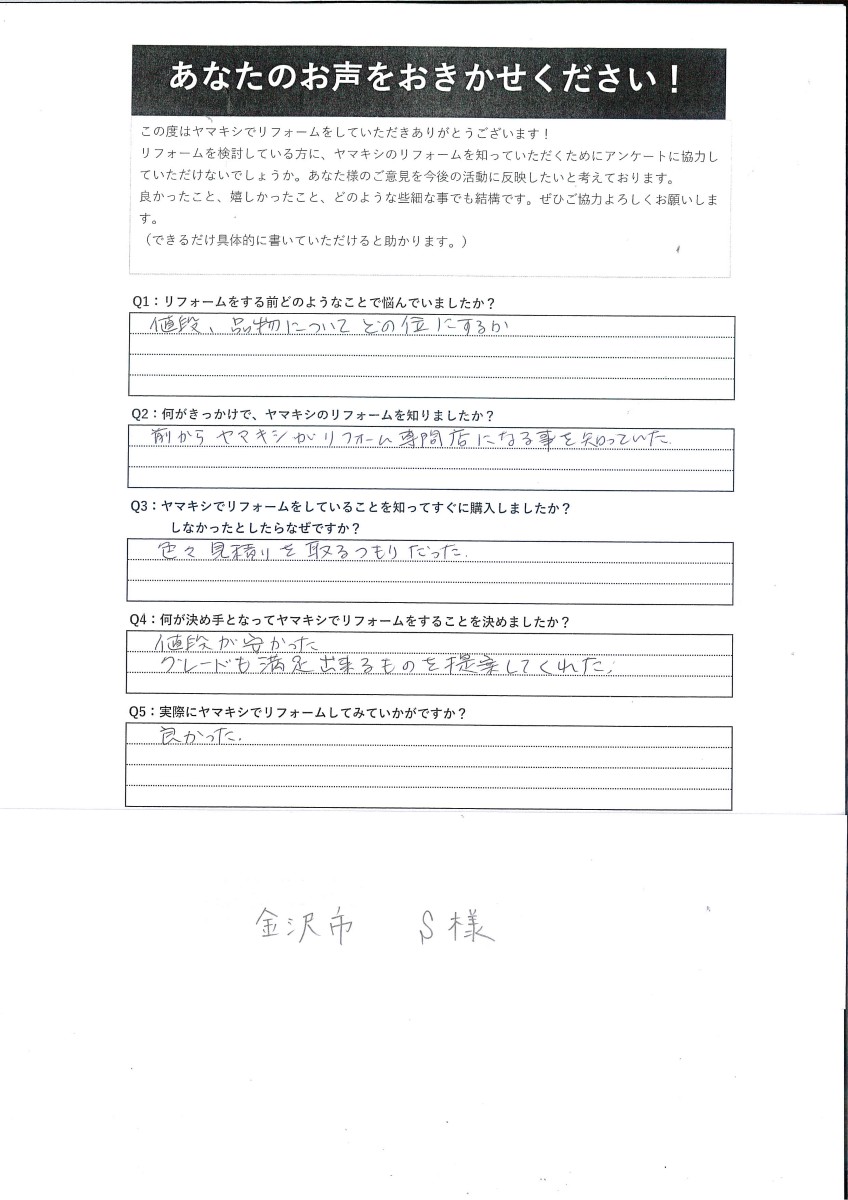 あなたのお声をおきかせください！
この度はヤマキシでリフォームをしていただきありがとうございます！
リフォームを検討している方に、ヤマキシのリフォームを知っていただくためにアンケートに協力し
ていただけないでしょうか。あなた様のご意見を今後の活動に反映したいと考えております。
良かったこと、嬉しかったこと、どのような些細な事でも結構です。ぜひご協力よろしくお願いしま
す。
（できるだけ具体的に書いていただけると助かります。）
Q1：リフォームをする前どのようなことで悩んでいましたか？
値段、品物についてどの位にするか
Q2：何がきっかけで、ヤマキシのリフォームを知りましたか？
前からヤマキシがリフォーム専門店になる事を知っていた.
Q3：ヤマキシでリフォームをしていることを知ってすぐに購入しましたか？
しなかったとしたらなぜですか？
色々見積りを取るつもりだった.
Q4：何が決め手となってヤマキシでリフォームをすることを決めましたか？
値段が安かった
グレードも満足出来るものを提案してくれた.
Q5：実際にヤマキシでリフォームしてみていかがですか？
良かった.
金沢市 S様